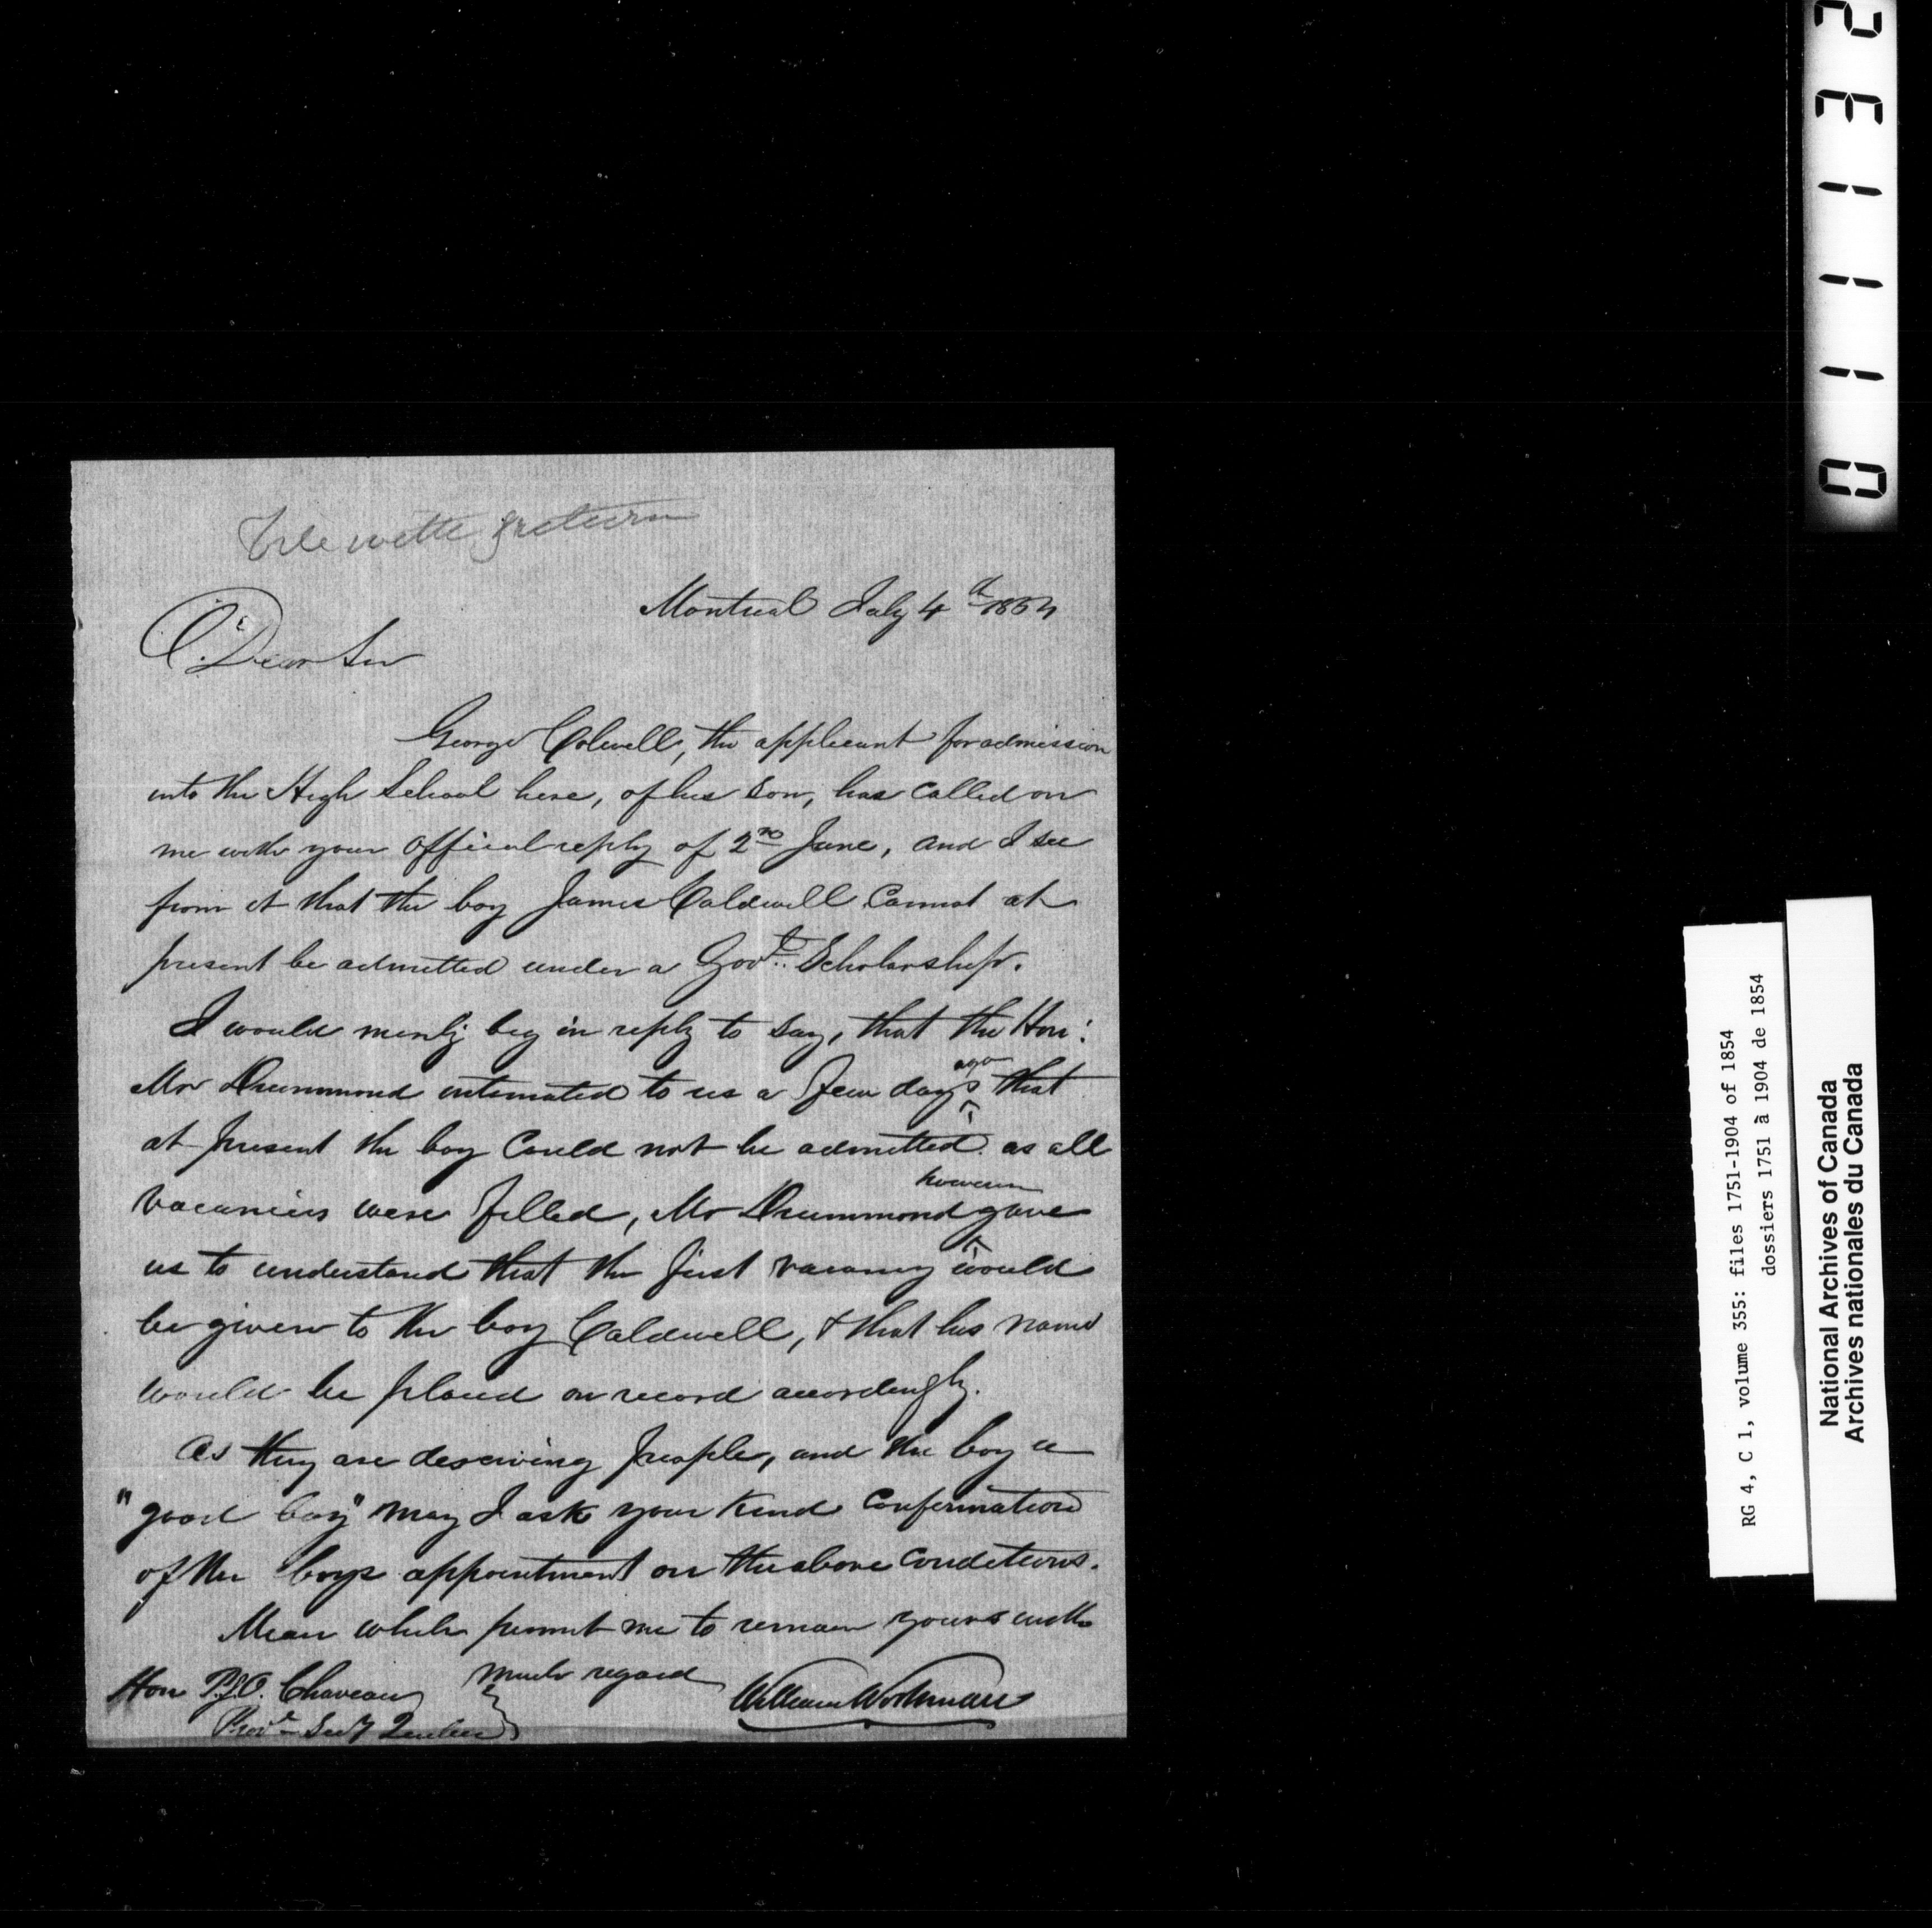 File with & return
Montreal July 4th 1854
Dear Sir
George Colwell, the applicant for admission
into the High School here, of his son, has called on
me with your official reply of 2nd June, and I see
from it that the boy James Caldwell cannot at
present be admitted under a Govt. Scholarship.
I would merely beg in reply to say, that the Hon:
Mr Drummond intimated to us a few days ago that
at present the boy could not be admitted as all
vacancies were filled, Mr Drummond however gave
us to understand that the first vacancy would
be given to the boy Caldwell, & that his name
would be placed on record accordingly.
As they are deserving people, and the boy a
"good boy" may I ask your kind confirmation
of the boys appointment on the above conditions.
Mean while permit me to remain yours with
much regard
William Workman
Hon P.J.O. Chaveau
Provl Secy Quebec
011132
RG 4, C 1, volume 355: files 1751-1904 of 1854
dossiers 1751 à 1904 de 1854
National Archives of Canada
Archives nationales du Canada